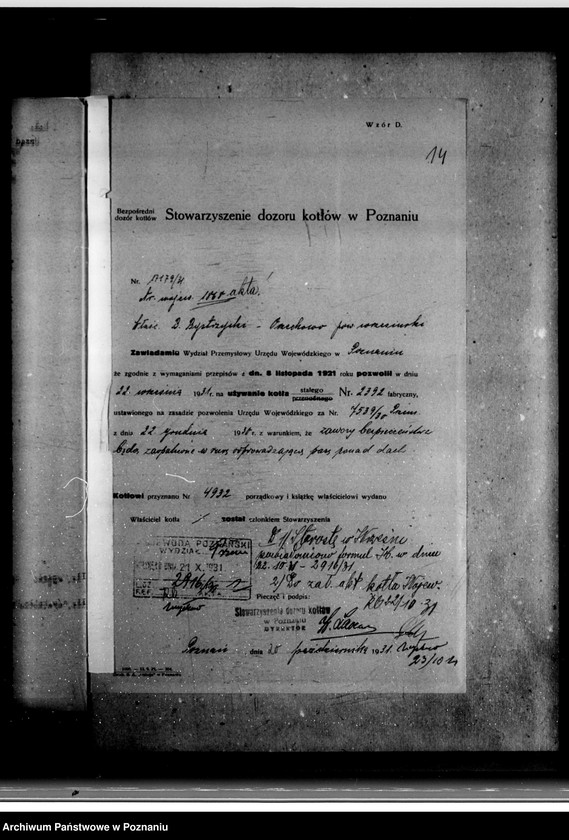 Wzór D.
14
Bezpośredni
dozór kotłów
Stowarzyszenie dozoru kotłów w Poznaniu
Nr.
Nr. wojew. 1868 akta!
Właśc. B. Bystrzycki -
Zawiadamia Wydział Przemysłowy Urzędu Wojewódzkiego w Poznaniu
że zgodnie z wymaganiami przepisów z dn. 5 listopada 1921 roku pozwolił w dniu
22 września 1931 r. na używanie kotła stałego Nr. 2392 fabryczny,
przewoźnego
ustawionego na zasadzie pozwolenia Urzędu Wojewódzkiego za Nr. 7539/30
z dnia 22 grudnia 1930 r. z warunkiem, że zawory bezpieczeństwa
będą zaopatrzone w rury odprowadzające parę ponad dach
Kotłowi przyznano Nr 4932 porządkowy i książkę właścicielowi wydano
Właściciel kotła został członkiem Stowarzyszenia
WYDZIAŁ
21 X. 1931
2916/31
w Wrześni
formul. K. w dniu
22.10.31 - 2916/31
2/ Do zał. akt kotła Wojew.
22/10 31
Pieczęć i podpis:
Stowarzyszenie dozoru kotłów
w Poznaniu
DYREKTOR
Poznań dnia 20 października 1931.
23/10
Archiwum Państwowe w Poznaniu